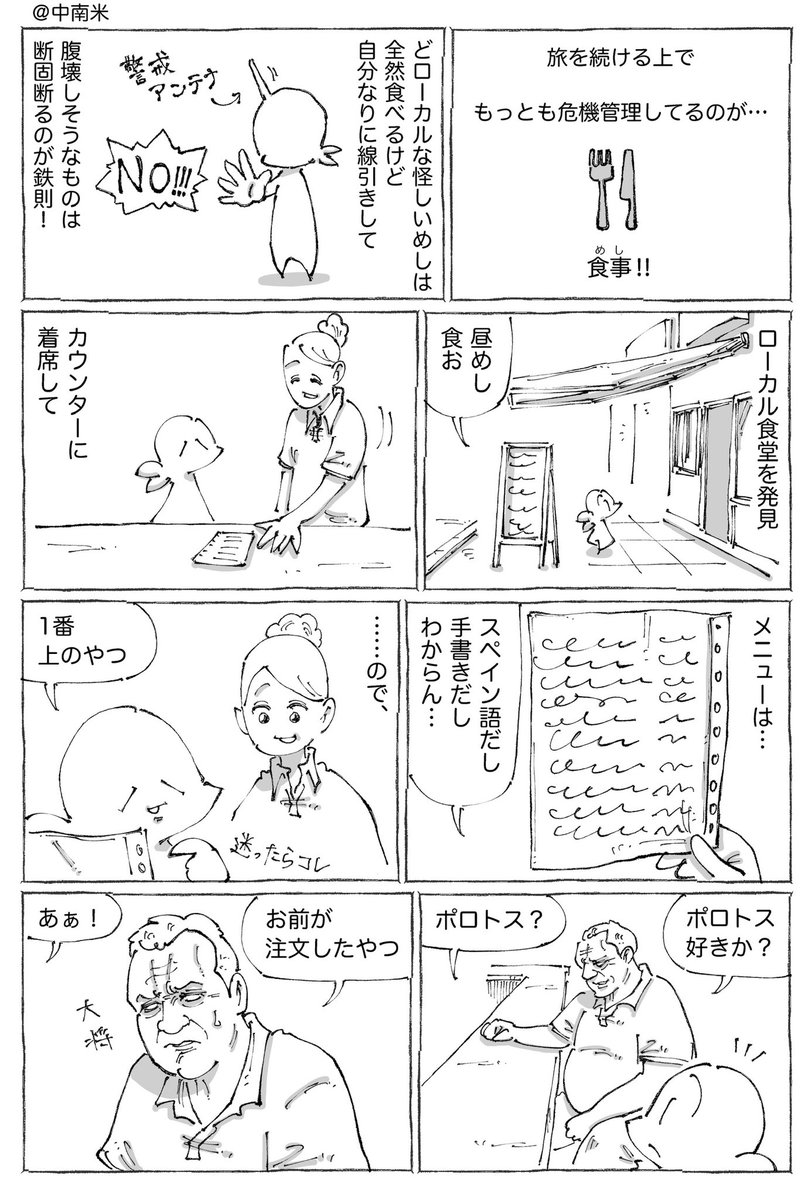 @中南米
旅を続ける上で
もっとも危機管理してるのが…
食事!!
めし
どローカルな怪しいめしは
全然食べるけど
自分なりに線引きして
警戒
アンテナ
NO!!!
腹壊しそうなものは
断固断るのが鉄則！
ローカル食堂を発見
昼めし
食お
カウンターに
着席して
メニューは…
スペイン語だし
手書きだし
わからん…
……ので、
1番
上のやつ
迷ったらコレ
ポロトス
好きか？
ポロトス？
お前が
注文したやつ
あぁ！
大将